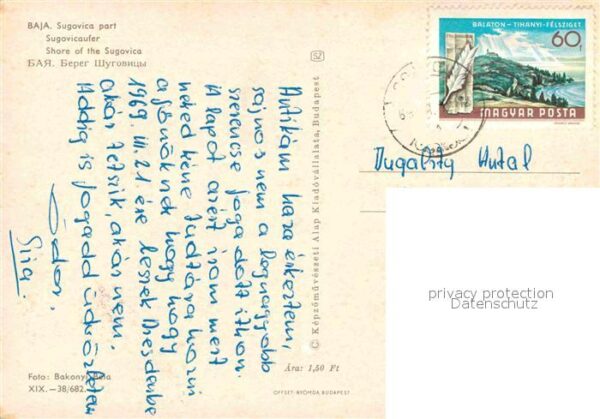 BAJA. Sugovica part
Sugovicaufer
Shore of the Sugovica
БАЯ. Берег Шуговицы
SZ
BALATON - TIHANYI-FÉLSZIGET
60f
MAGYAR POSTA
Antikám haza érkeztem,
sajnos nem a legnagyobb
szerencse fogadott itthon.
A lapot azért írom mert
neked kéne tudtára hozni
a főnöknek hogy
1969. III. 21. ére leszek Dresdenbe
akár tetszik, akár nem.
Addig is fogadd üdvözletem
Ödön,
© Képzőművészeti Alap Kiadóvállalata, Budapest
Antal
privacy protection
Datenschutz
Foto: Bakonyi Béla
XIX.—38/682
Ára: 1,50 Ft
OFFSET-NYOMDA BUDAPEST